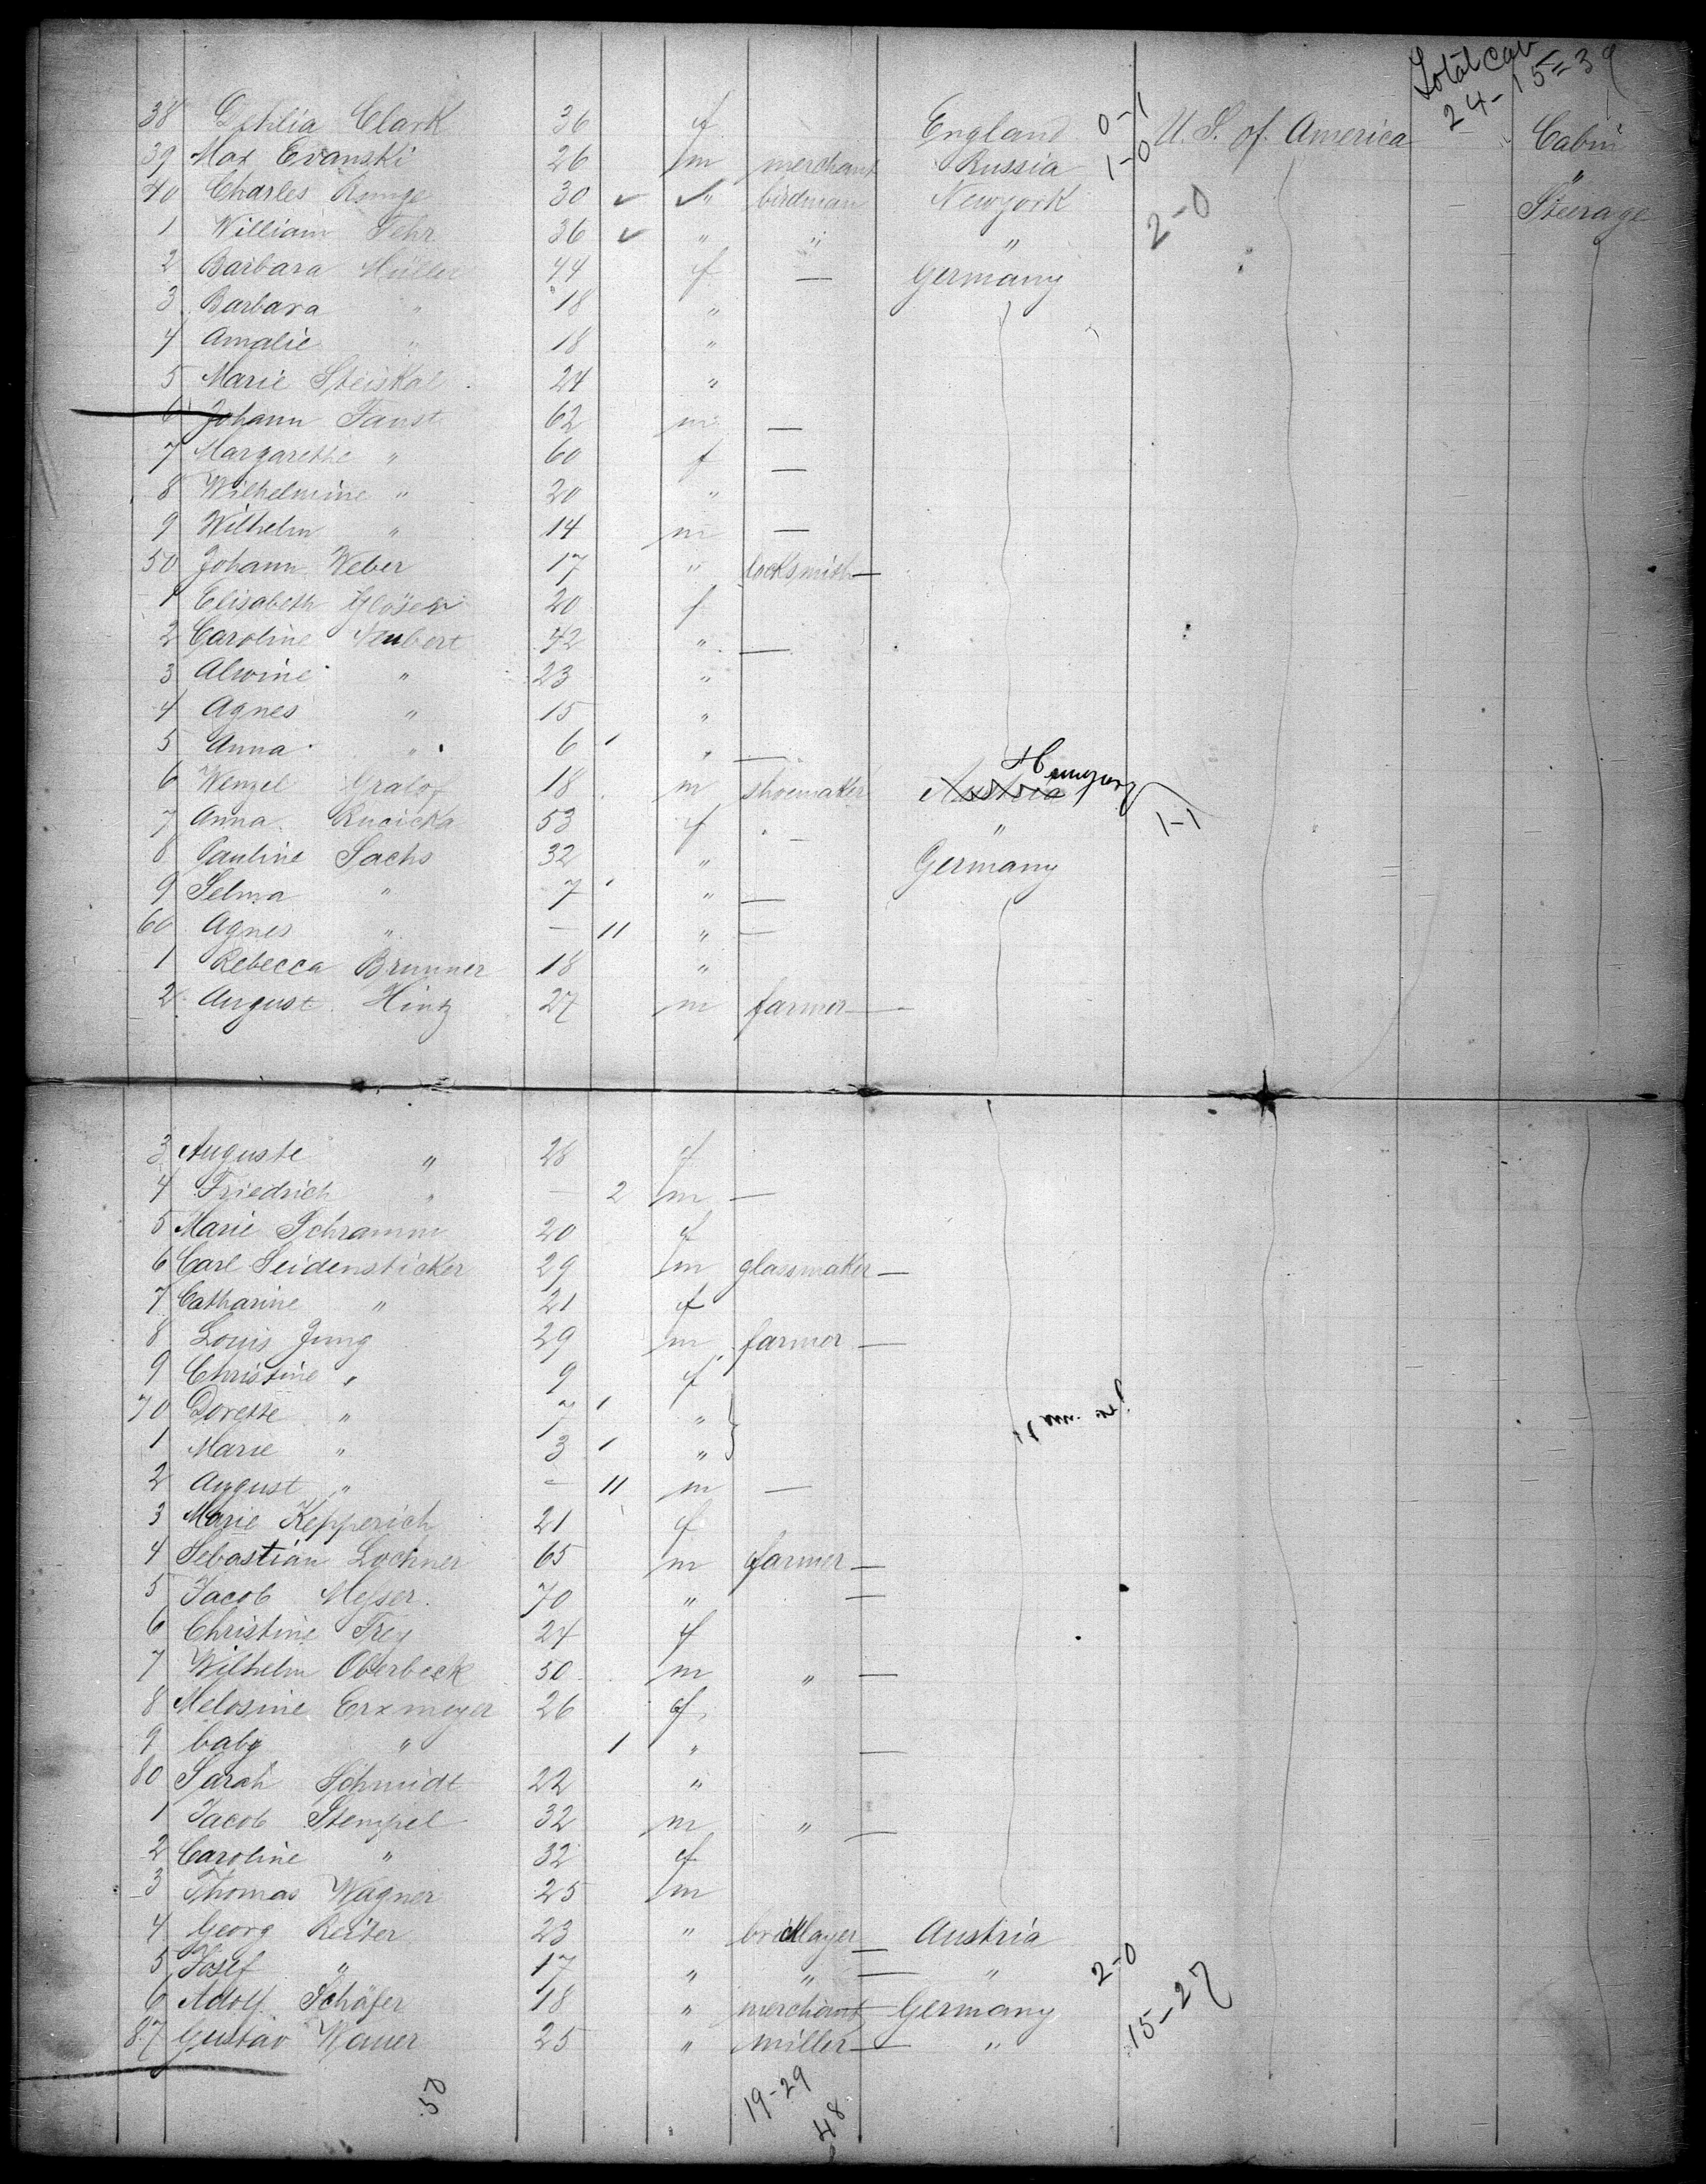 Total Cab
24-15=39
38 Dehlia Clark 36 f England 0-1 U. S. of America Cabin
39 Max Evanski 26 m merchant Russia 1-0 "
40 Charles Runge 30 ✓ ✓ " birdman Newyork 2-0 Steerage
1 William Fehr 36 ✓ " " "
2 Barbara Müller 44 f — Germany
3 Barbara " 18 "
4 Amalie " 18 "
5 Marie Steiskal 24 "
6 Johann Faust 62 m —
7 Margarethe " 60 f —
8 Wilhelmine " 20 "
9 Wilhelm " 14 m —
50 Johann Weber 17 " locksmith —
1 Elisabeth 20 f
2 Caroline Neubert 42 " —
3 Alwine " 23 "
4 Agnes " 15 "
5 Anna " 6 ' " —
Hungary
6 Wenzel Gralof 18 m shoemaker Austria 1-1
7 Anna Rucicka 53 f — "
8 Pauline Sachs 32 " Germany
9 Selma " 7 ' " —
60 Agnes " — 11 " —
1 Rebecca Brunner 18 "
2 August Hintz 27 m farmer —
3 Auguste " 28 f
4 Friedrich " — 2 m —
5 Marie Schramm 20 f
6 Carl Seidensticker 29 m glassmaker —
7 Catharine " 21 f
8 Louis Jung 29 m farmer —
9 Christine " 9 f
70 Dorette " 7 ' "
1 Marie " 3 ' "
2 August " — 11 m —
3 Marie Kepperich 21 f
4 Sebastian Lochner 65 m farmer —
5 Jacob Messer 70 " —
6 Christine Frey 24 f
7 Wilhelm Oberbeck 50 m " —
8 Melosine Erxmeyer 26 f
9 baby " 1 " —
80 Sarah Schmidt 22 "
1 Jacob Stempel 32 m " —
2 Caroline " 32 f
3 Thomas Wagner 25 m
4 Georg Reiter 23 " bricklayer — Austria
5 Josef " 17 " " — " 2-0
6 Adolf Schäfer 18 " merchant Germany
87 Gustav Wauer 25 " miller — " 15-27
50 19-29
48